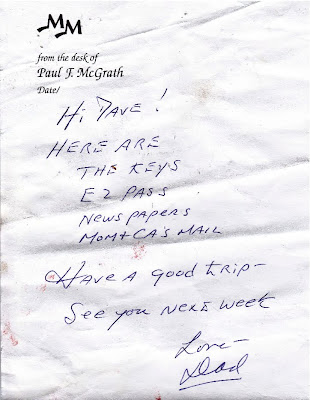 MM
from the desk of
Paul F. McGrath
Date/
Hi Dave!
HERE ARE
THE KEYS
EZ PASS
Newspapers
Mom+CA's MAIL
HAVE A good trip-
See you Next week
Love-
Dad